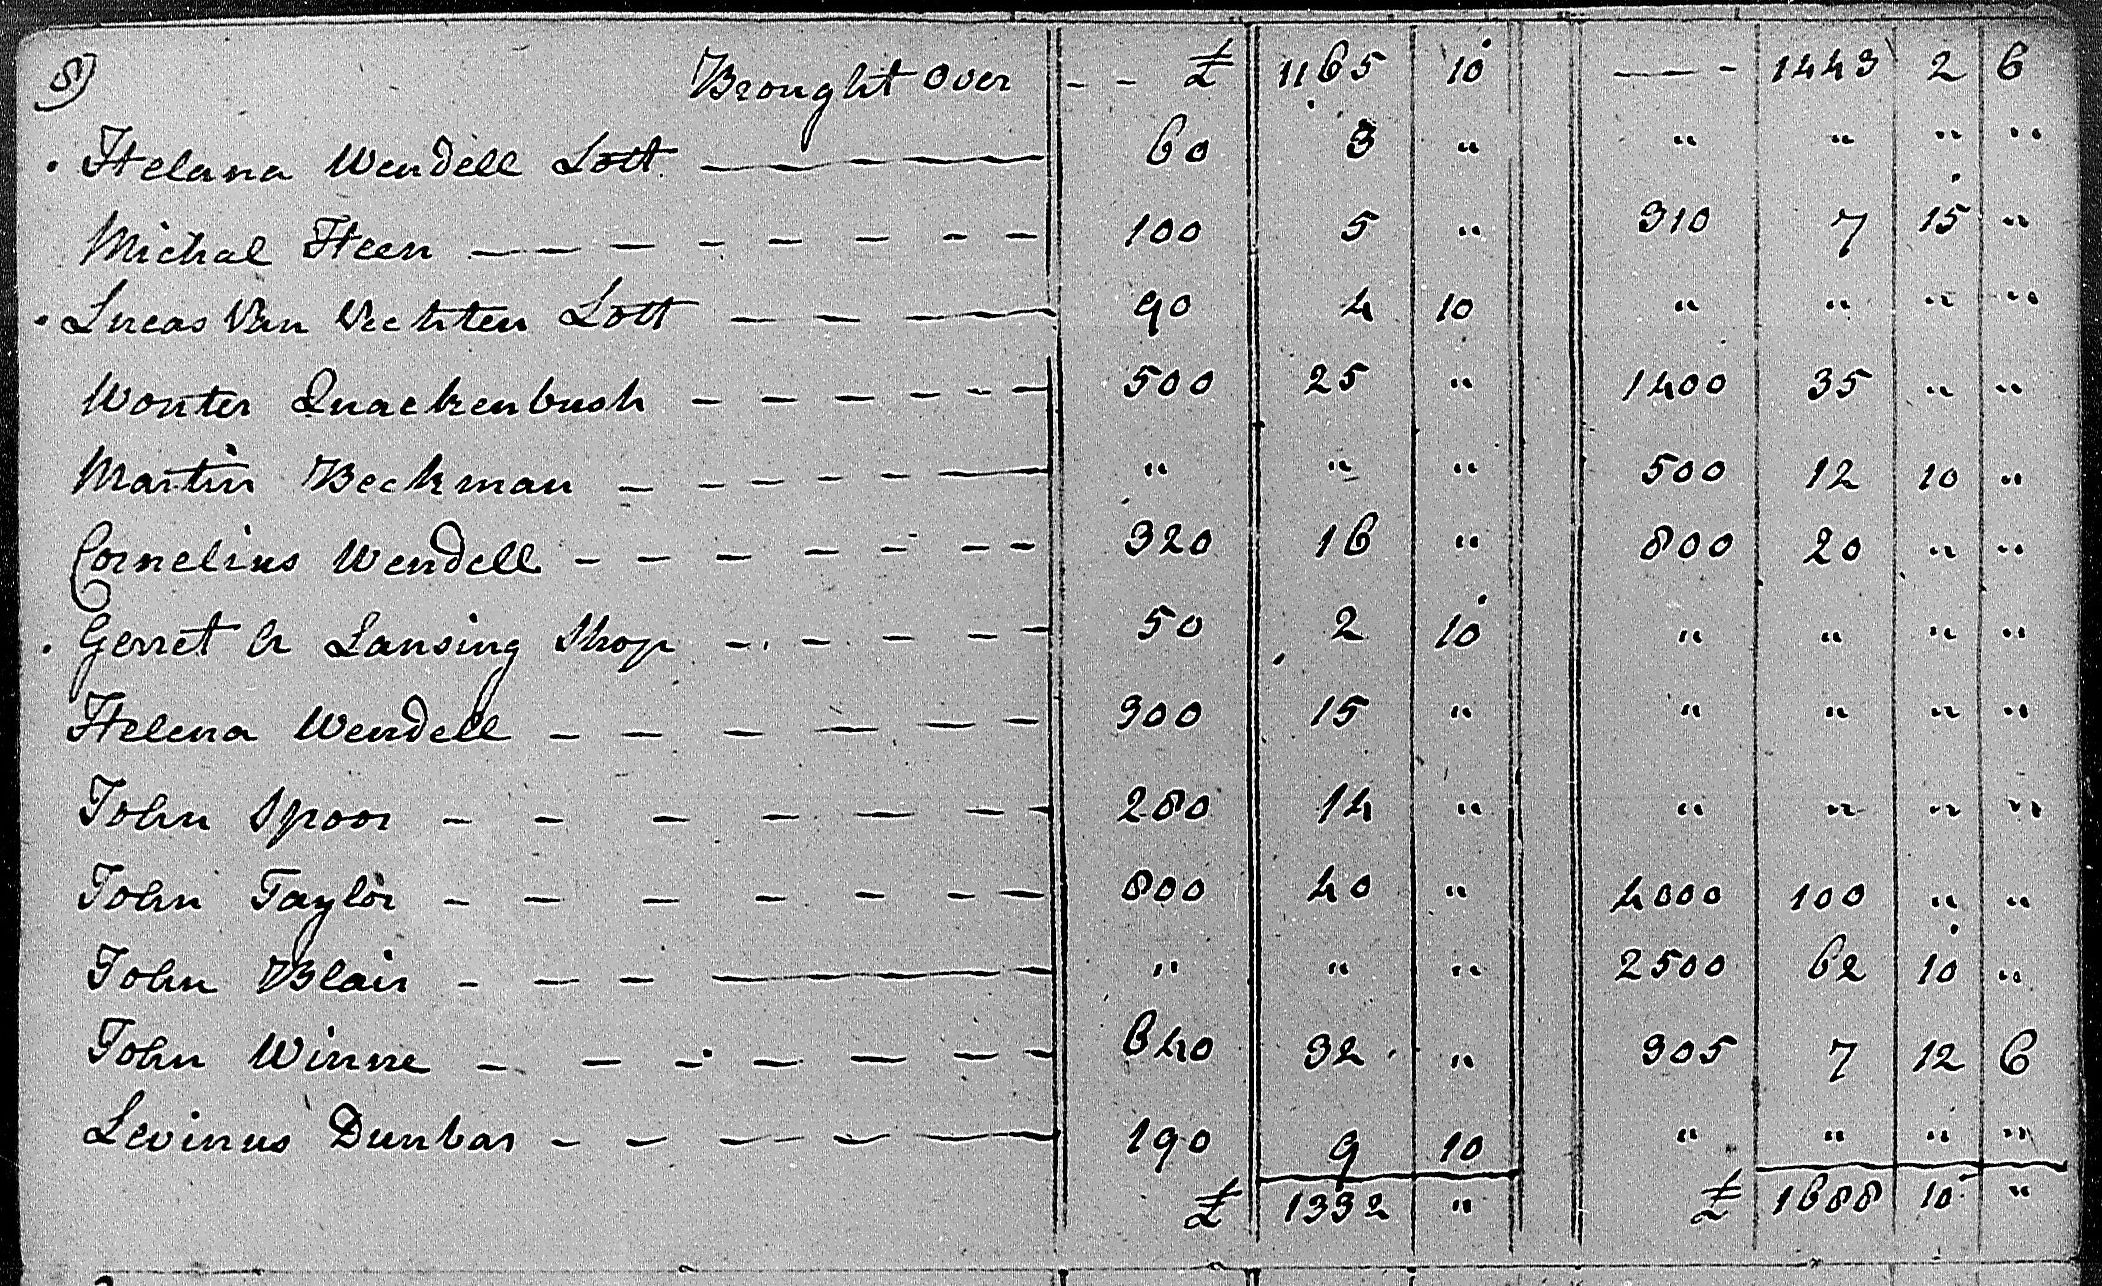 8) Brought over - - £ 1165 10 — - 1443 2 6
. Helana Wendell Lott — 60 3 " " " " "
Michal Heen — 100 5 " 310 7 15 "
. Lucas Van Vechten Lott — 90 4 10 " " " "
Wouter Quackenbush — 500 25 " 1400 35 " "
Martin Beekman — " " " 500 12 10 "
Cornelius Wendell — 320 16 " 800 20 " "
. Gerret Lansing Shop — 50 2 10 " " " "
Helena Wendell — 300 15 " " " " "
John Spoor — 280 14 " " " " "
John Taylor — 800 40 " 4000 100 " "
John Blair — " " " 2500 62 10 "
John Winne — 640 32 " 305 7 12 6
Levinus Dunbar — 190 9 10 " " " "
£ 1332 " £ 1688 10 "